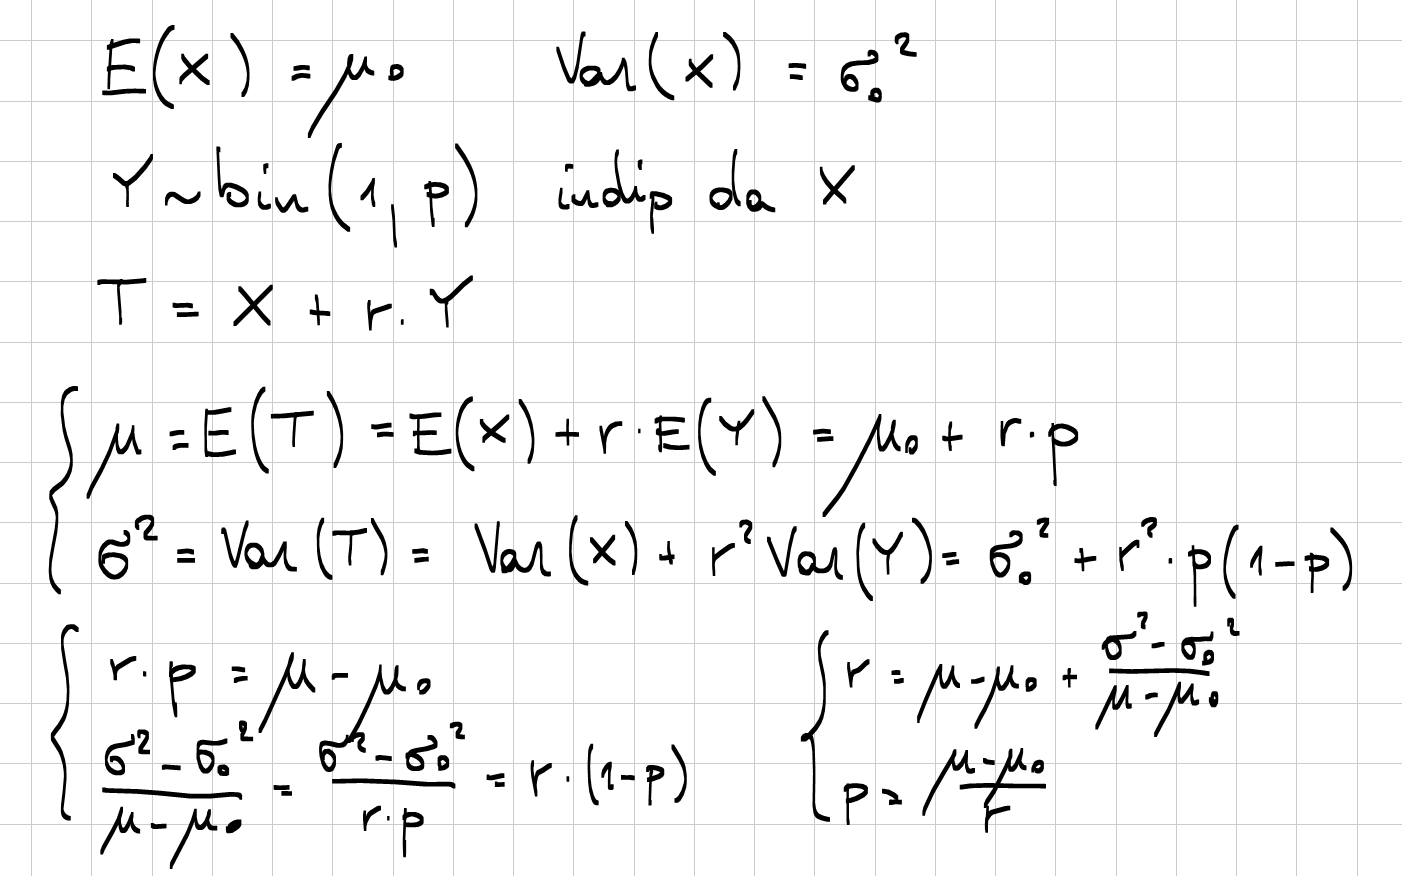 E(X) = μ₀ Var(X) = σ₀²
Y ~ bin(1, p) indip da X
T = X + r · Y
{ μ = E(T) = E(X) + r · E(Y) = μ₀ + r · p
σ² = Var(T) = Var(X) + r² Var(Y) = σ₀² + r² · p(1-p)
{ r · p = μ - μ₀
(σ² - σ₀²)/(μ - μ₀) = (σ² - σ₀²)/(r · p) = r · (1-p)
{ r = μ - μ₀ + (σ² - σ₀²)/(μ - μ₀)
p = (μ - μ₀)/r